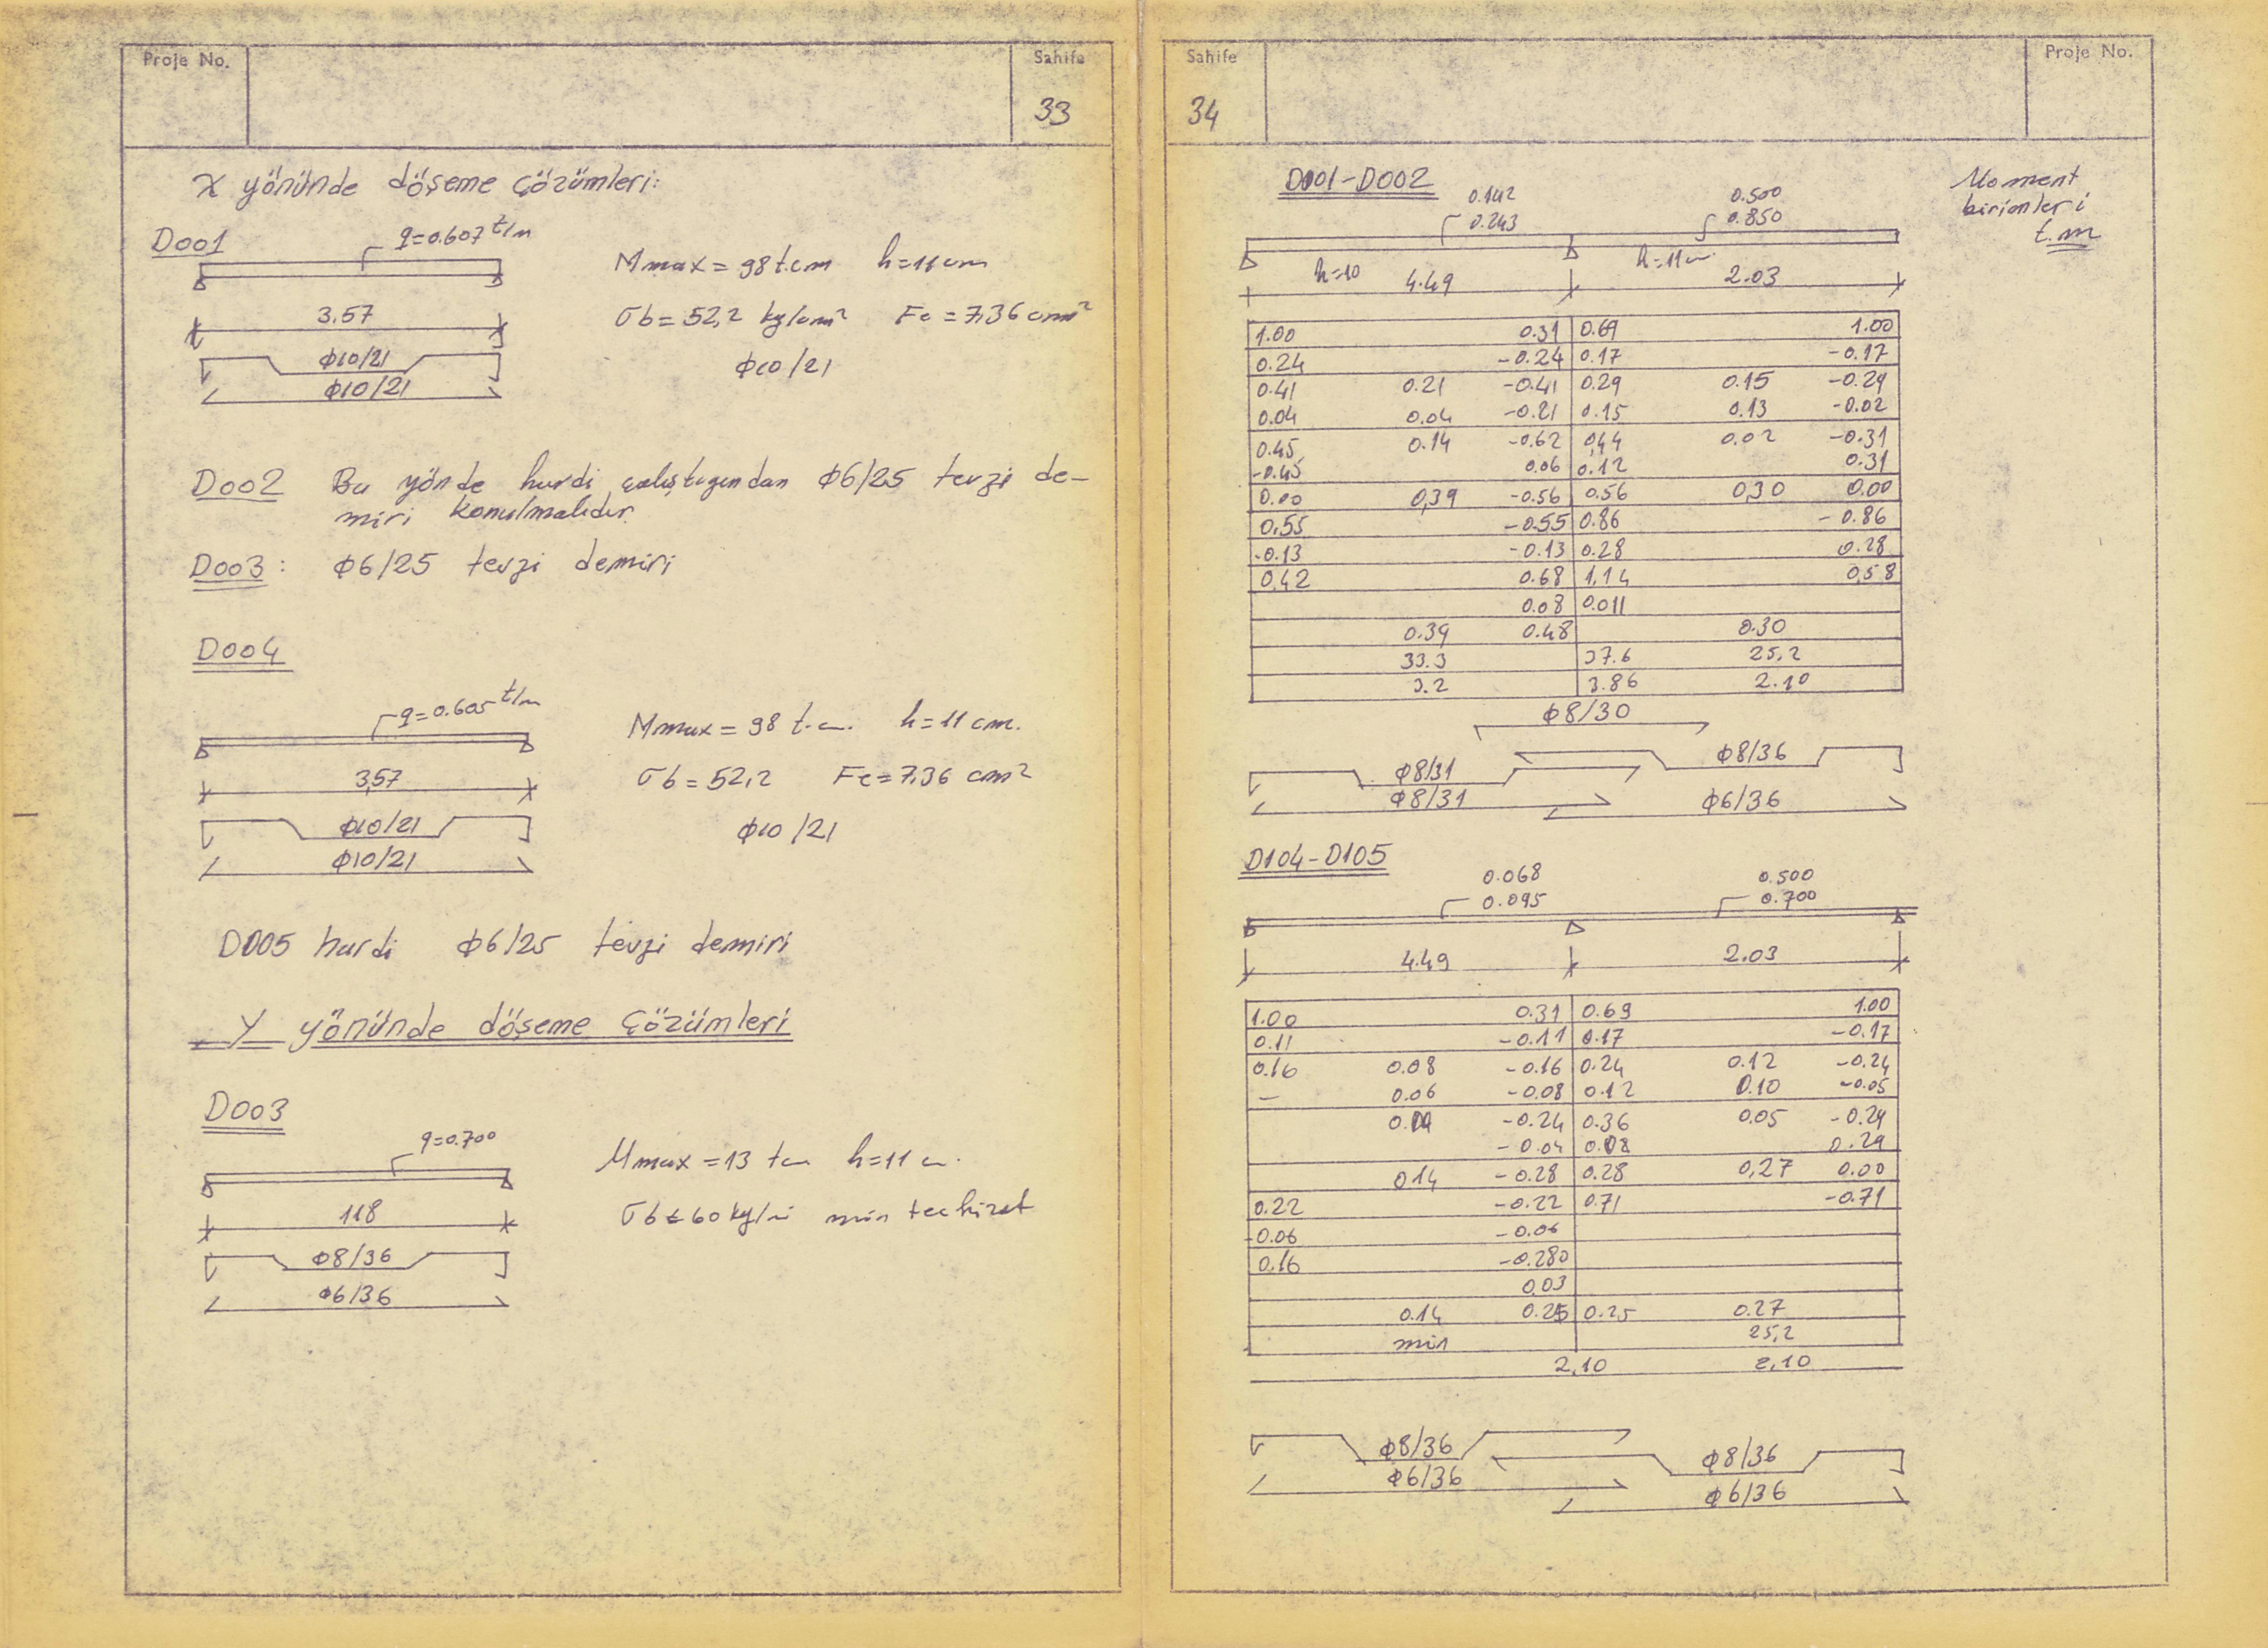 Proje No.
Sahife
33
X yönünde döşeme çözümleri:
D001
q=0.607 t/m
Mmax = 98 t.cm h=11 cm
3.57
σb = 52,2 kg/cm² Fe = 7,36 cm²
Φ10/21
Φ10/21
Φ10/21
D002 Bu yönde hurdi çalıştığından Φ6/25 tevzi de-
miri konulmalıdır.
D003: Φ6/25 tevzi demiri
D004
q=0.605 t/m
Mmax = 98 t.cm. h=11 cm.
3,57
σb = 52,2 Fe = 7,36 cm²
Φ10/21
Φ10/21
Φ10/21
D005 hurdi Φ6/25 tevzi demiri
Y yönünde döşeme çözümleri
D003
q=0.700
Mmax = 13 tcm h=11 cm.
118
σb ≤ 60 kg/cm² min techizat
Φ8/36
Φ6/36
Sahife
Proje No.
34
D001-D002
Moment
birimleri
t.m
0.142 0.500
0.243 0.850
h=10 h=11cm
4.49 2.03
1.00 0.31 0.69 1.00
0.24 -0.24 0.17 -0.17
0.41 0.21 -0.41 0.29 0.15 -0.29
0.04 0.04 -0.21 0.15 0.13 -0.02
0.45 0.14 -0.62 0,44 0.02 -0.31
-0.45 0.06 0.12 0.31
0.00 0,39 -0.56 0.56 0,30 0.00
0,55 -0.55 0.86 -0.86
-0.13 -0.13 0.28 0.28
0,42 0.68 1,14 0,58
0.08 0.011
0.39 0.48 0.30
33.3 37.6 25,2
3.2 3.86 2.10
Φ8/30
Φ8/31 Φ8/36
Φ8/31 Φ6/36
D104-D105
0.068 0.500
0.095 0.700
4.49 2.03
1.00 0.31 0.69 1.00
0.11 -0.11 0.17 -0.17
0.16 0.08 -0.16 0.24 0.12 -0.24
- 0.06 -0.08 0.12 0.10 -0.05
-0.24 0.36 0.05 -0.29
-0.04 0.08 0.29
0.14 -0.28 0.28 0,27 0.00
0.22 -0.22 0.71 -0.71
-0.06 -0.06
0.16 -0.280
0,03
0.14 0.25 0.25 0.27
min 25,2
2,10 2,10
Φ8/36 Φ8/36
Φ6/36 Φ6/36